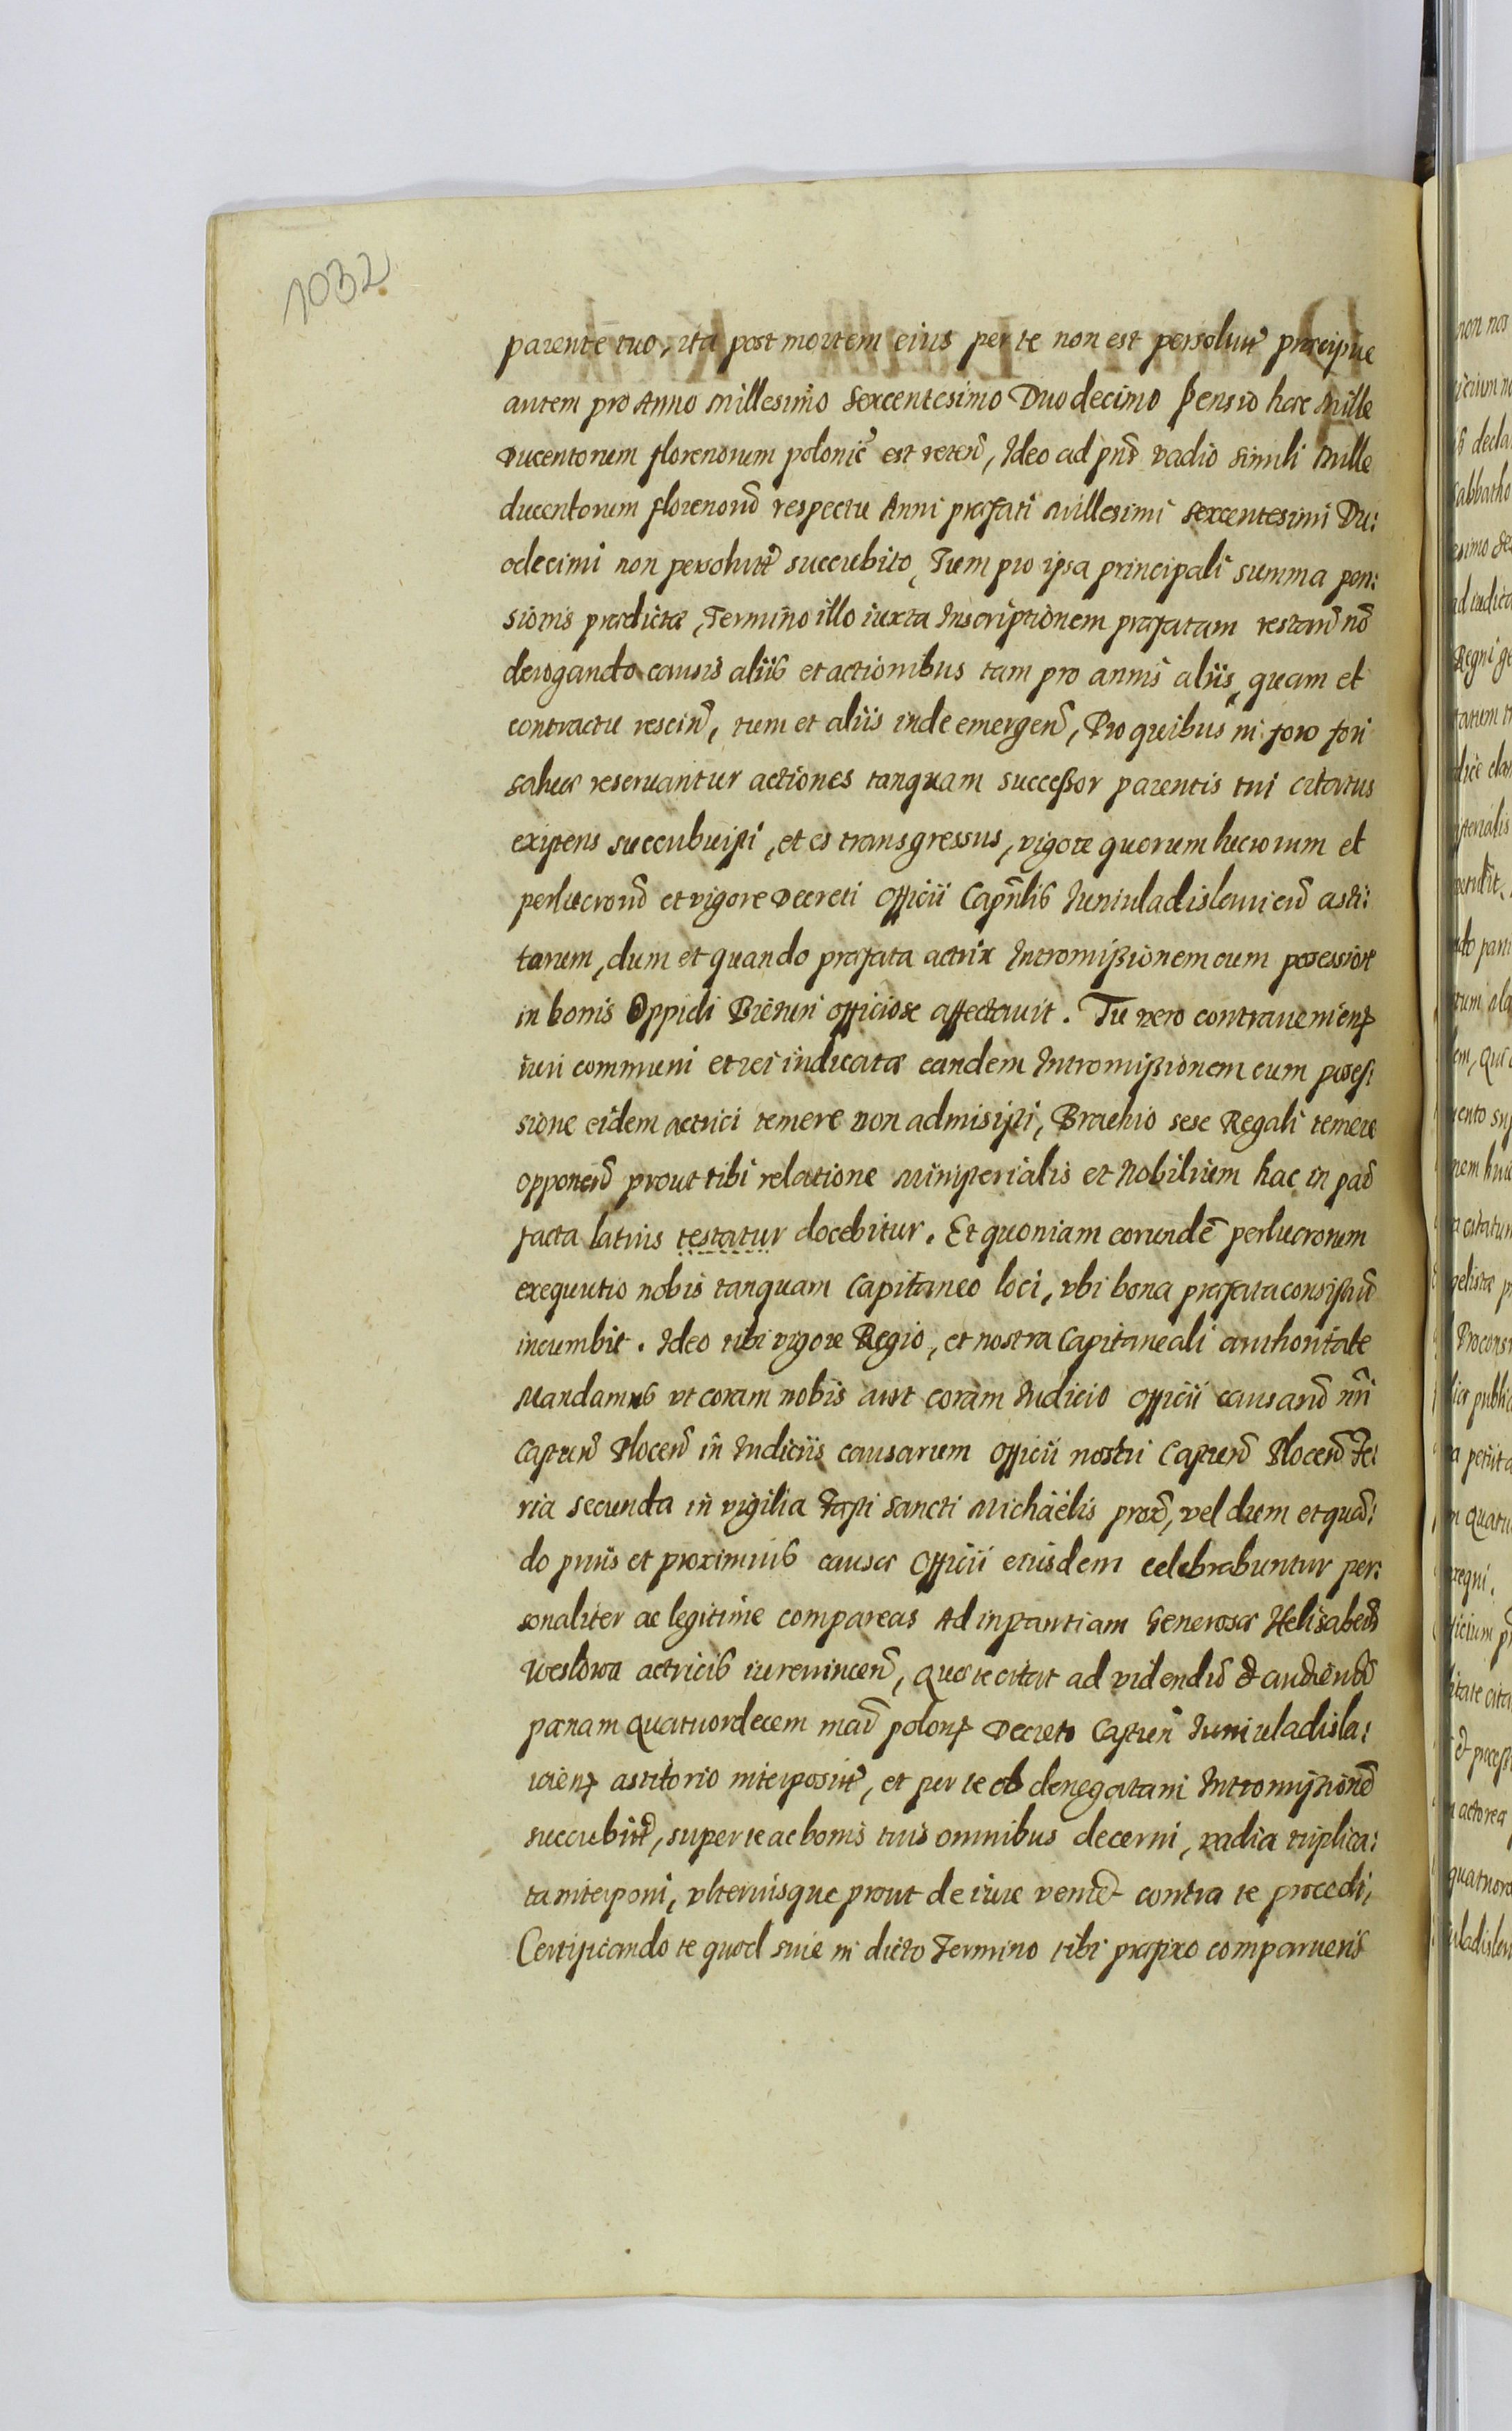 1032
parente tuo, ita post mortem eius per te non est persolut præcipue
autem pro Anno Millesimo Sexcentesimo Duodecimo Pensio hæc Mille
Ducentorum florenorum polonic est reten, Ideo ad pns vadio simili Mille
ducentorum florenorū respectu Anni præfati Millesimi Sexcentesimi Du:
odecimi non persolut succubito, Tum pro ipsa principali summa pen:
sionis prædictæ, Termino illo iuxta Inscriptionem præfatam restan nō
derogando causis aliis et actionibus tam pro annis aliis, quam et
contractu rescin, tum et aliis inde emergen, Pro quibus in foro fori
salvæ reservantur actiones tanquam successor parentis tui citatus
existens succubuisti, et es transgressus, vigore quorum lucrorum et
perlucrorū et vigore Decreti Officii Capnlis Iuniuladislauien asti:
tarum, dum et quando præfata actrix Intromissionem cum possessiōe
in bonis Oppidi Biezuń officiose affectavit. Tu vero contravenienș
iuri communi et rei iudicatæ eandem Intromissionem cum posses:
sione eidem actrici temere non admisisti, Brachio sese Regali temere
opponen prout tibi relatione Ministerialis et Nobilium hac in par
facta latius testatur docebitur. Et quoniam eorundē perlucrorum
exequutio nobis tanquam Capitaneo loci, ubi bona præfata consistun
incumbit. Ideo tibi vigore Regio, et nostra Capitaneali authoritate
Mandamus ut coram nobis aut coram Iudicio Officii causarū nri
Castren Plocen in Iudiciis causarum Officii nostri Castren Plocen Fe:
ria secunda in vigilia Festi Sancti Michaëlis prox, vel dum et quan:
do prius et proximius causæ Officii eiusdem celebrabuntur per:
sonaliter ac legitime compareas Ad instantiam Generosæ Helisabeth
Weslowa actricis iurevincen, quæ te citat ad videndū & audiendū
pœnam quatuordecem mar polonș Decreto Castren Iuniuladisla:
vienș astitorio interposit, et per te ob denegatam Intromissionē
succubit, super te ac bonis tuis omnibus decerni, vadia triplica:
ta interponi, ulteriusque prout de iure venit contra te procedi,
Certificando te quod sive in dicto Termino tibi præfixo comparueris